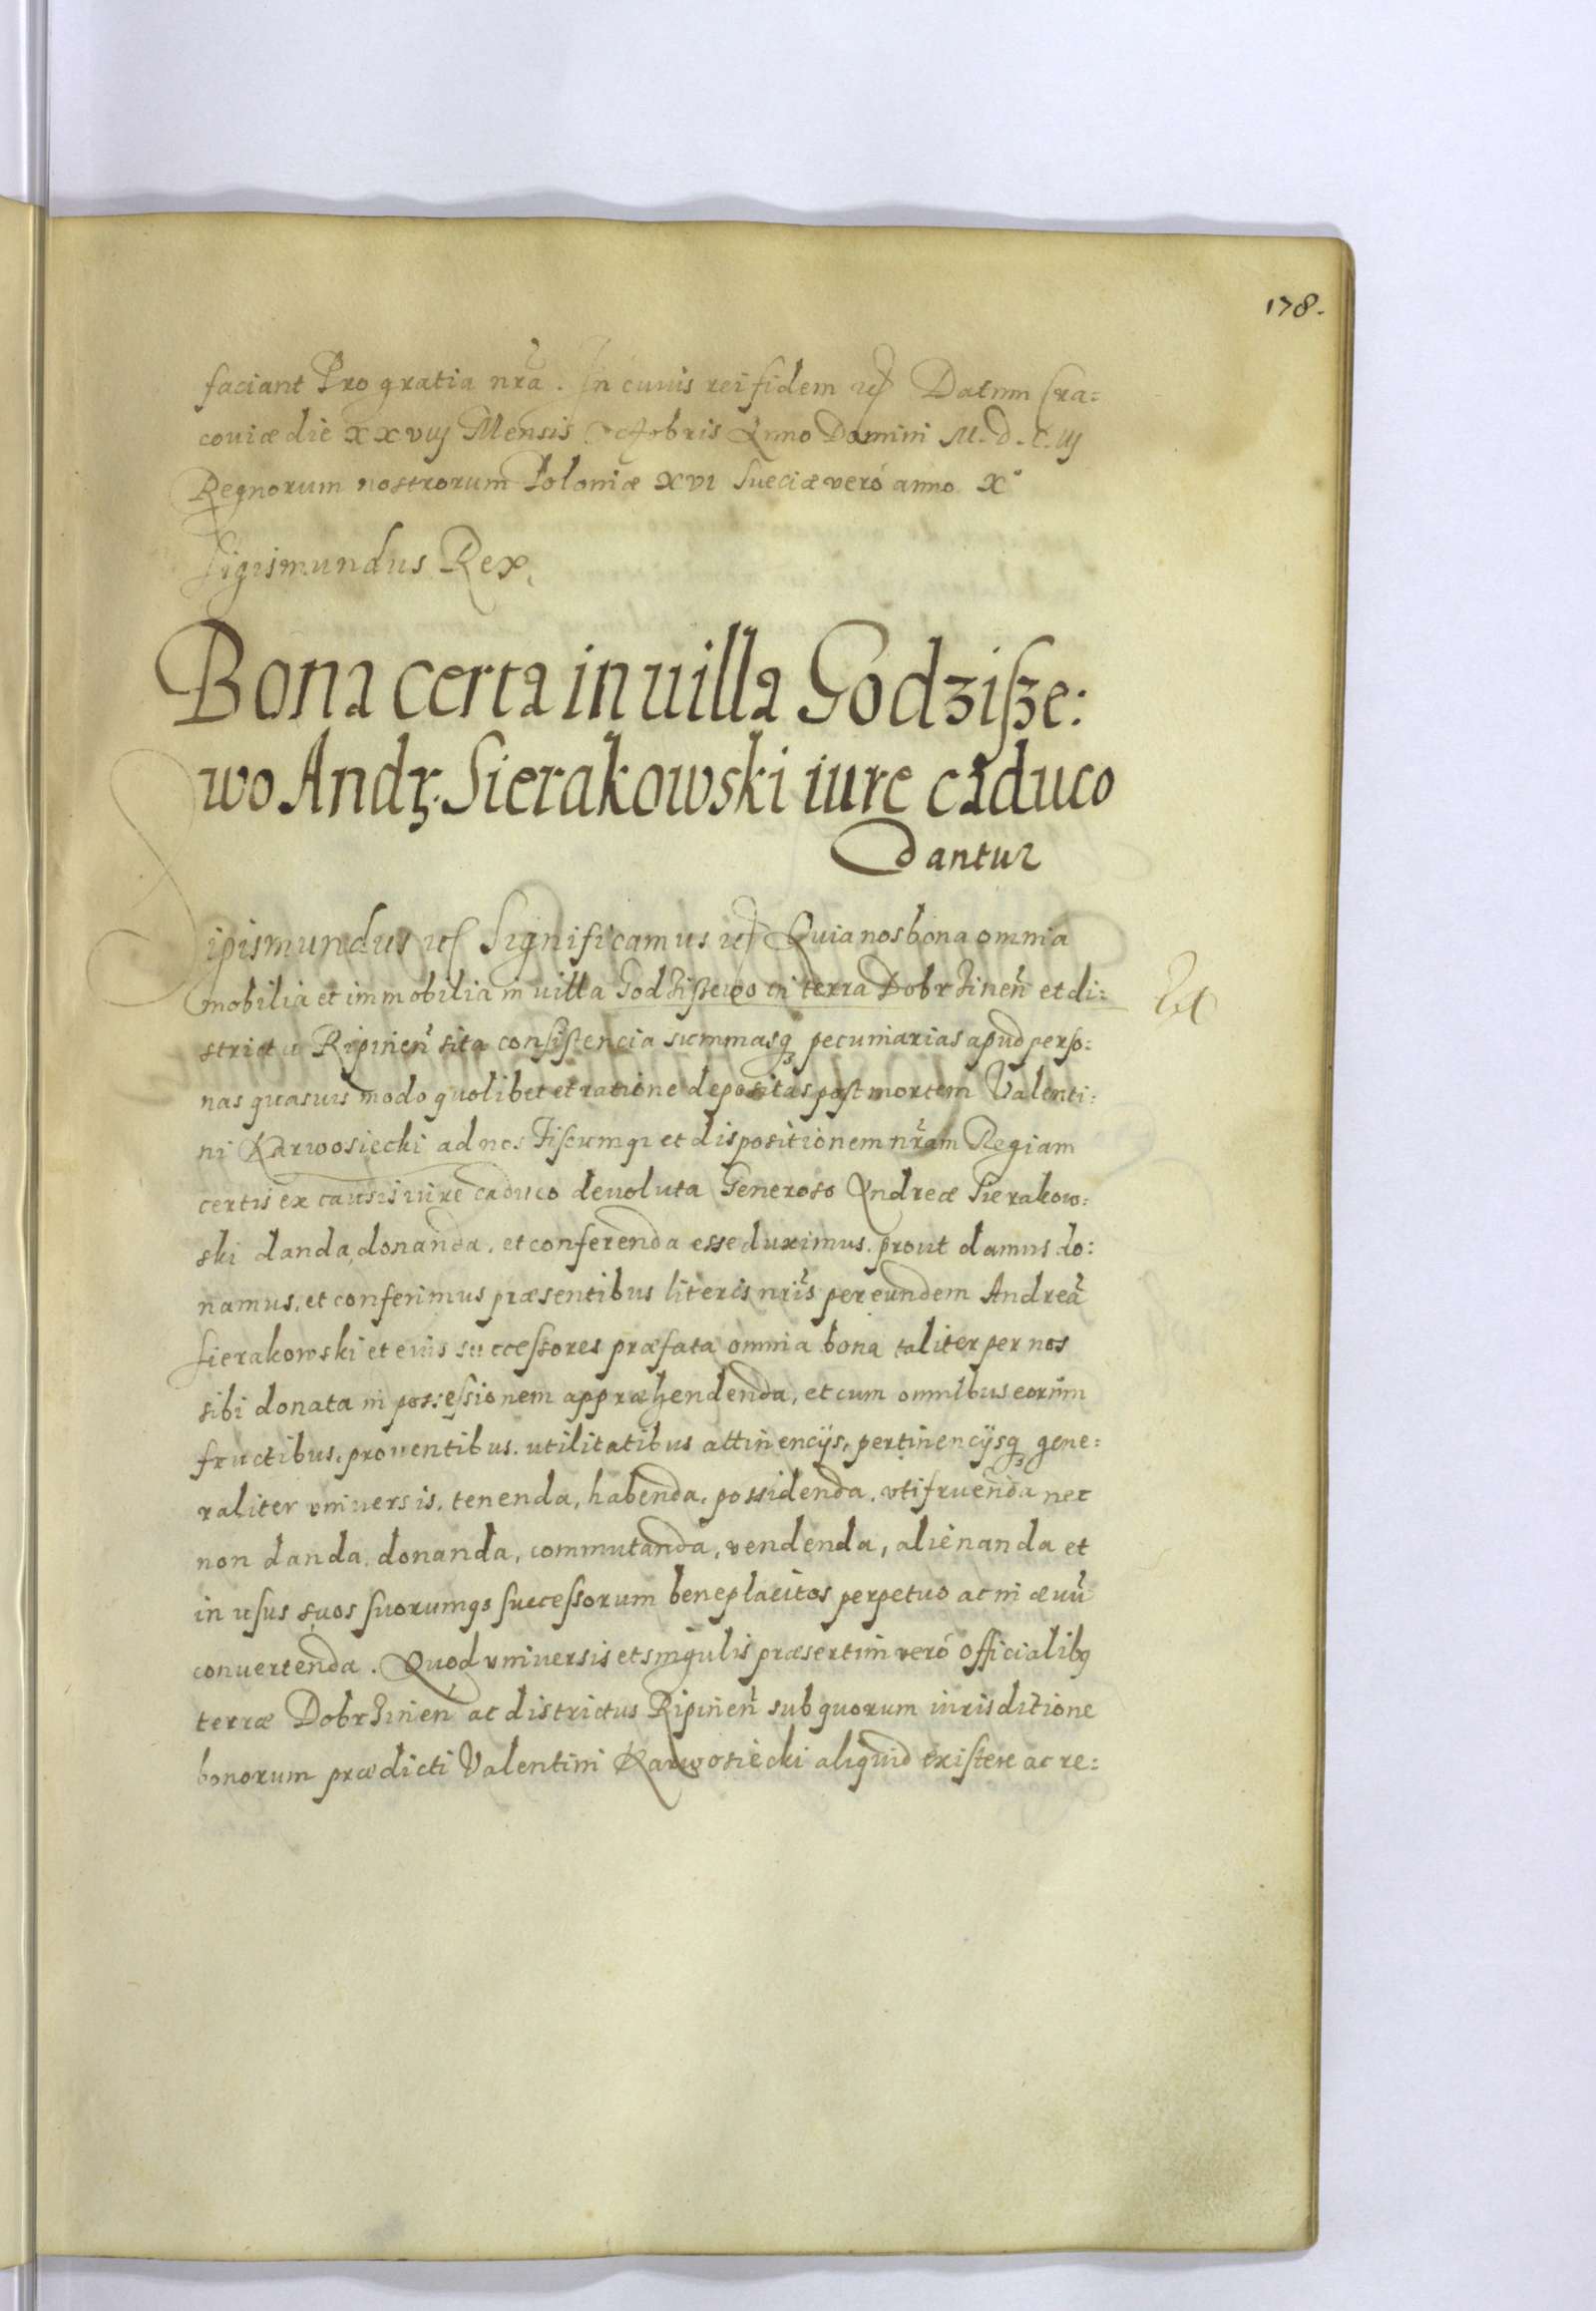 178.
faciant Pro gratia nrã. In cuius rei fidem etc Datum Cra=
couiæ die XXVIIJ Mensis Octobris Anno Domini M.D.C.IIJ
Regnorum nostrorum Poloniæ XVI Sueciæ verò anno X°
Sigismundus Rex,
Bona certa in uilla Godziſze:
wo Andꝛ. Sierakowski iure caduco
dantur
Sigismundus etc Significamus etc Quia nos bona omnia
mobilia et immobilia in uilla Godziſzewo in terra Dobrzineñ et di=
strictu Ripineñ sita conſiſtencia summasq₃ pecuniarias apud perſo:
nas quasuis modo quolibet et ratione depositas poſt mortem Valenti:
ni Karwosiecki ad nos Fiſcumq₃ et dispositionem nr̃am Regiam
certis ex causis iure caduco deuoluta Generoso Andreæ Sierakow:
ski danda, donanda, et conferenda esse duximus. prout damus do:
namus, et conferimus præsentibus literis nrĩs per eundem Andreã
Sierakowski et eius succeſsores præfata omnia bona taliter per nos
sibi donata in posseſsionem appræhendenda, et cum omnibus eorum
fructibus, prouentibus. utilitatibus attinencijs, pertinencijsq₃ gene=
raliter vniuersis, tenenda, habenda, possidenda, vtifruenda nec
non danda, donanda, commutanda, vendenda, alienanda et
in uſus suos ſuorumq₃ ſucceſsorum beneplacitos perpetuo ac in æuũ
conuertenda. Quod vniuersis et singulis præsertim verò officialibq
terræ Dobrzineñ ac districtus Ripineñ sub quorum iurisditione
bonorum prædicti Valentini Karwosiecki aliquid exiſtere ac re=